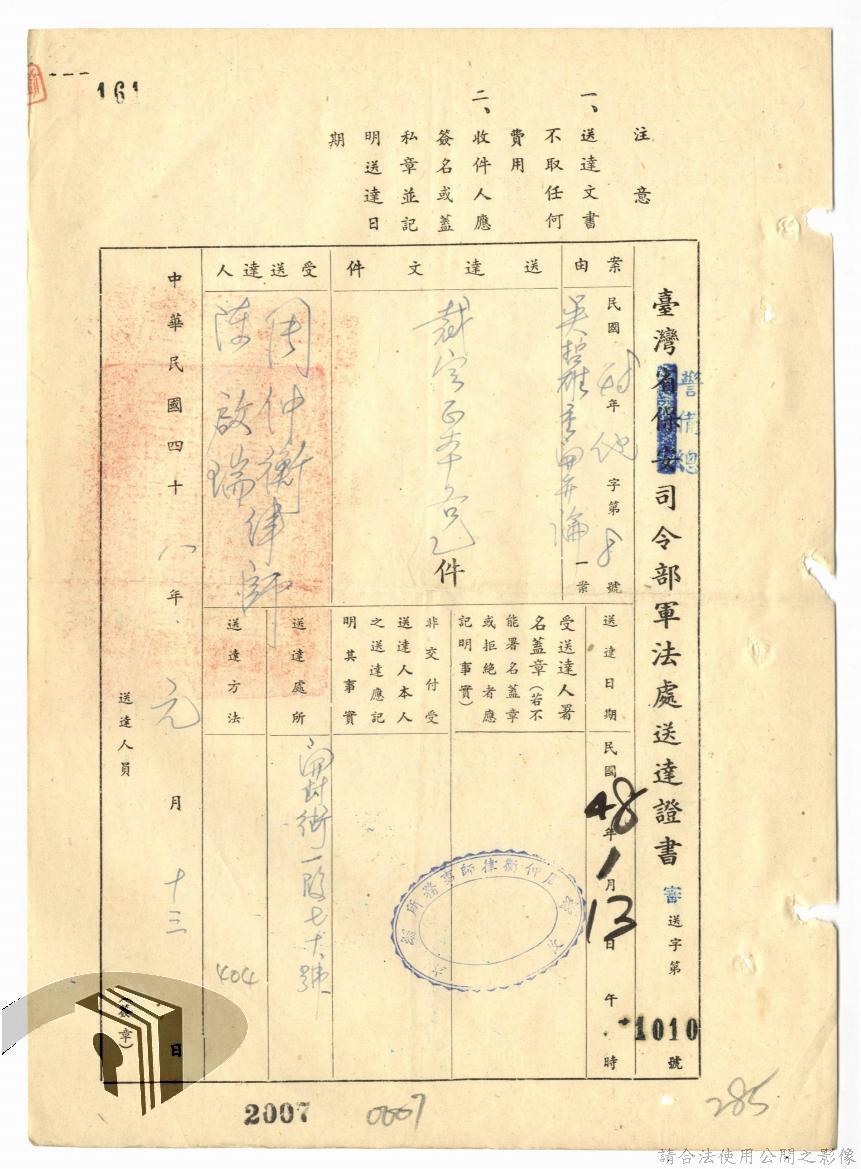 161
注意
一、送達文書
不取任何
費用
二、收件人應
簽名或蓋
私章並記
明送達日
期
臺灣省保安司令部軍法處送達證書
警備總
審送字第
1010
號
案由
民國年字第號
吳
一案
送達文件
件
受送達人
周仲衡律師
陳啟瑞
送達日期
民國48年1月13日午時
受送達人署
名蓋章(若不
能署名蓋章
或拒絕者應
記明事實)
非交付受
送達人本人
之送達應記
明其事實
送達處所
開封街一段七
號
送達方法
404
周仲衡律師事務所
中華民國四十八年元月十三日
送達人員
(簽章)
2007
0007
285
請合法使用公開之影像